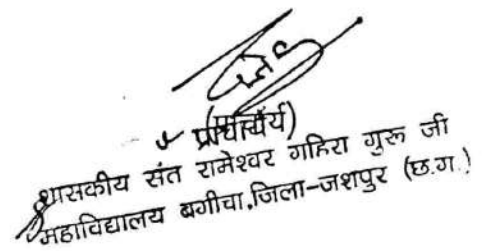 (प्राचार्य)
शासकीय संत रामेश्वर गहिरा गुरू जी
महाविद्यालय बगीचा,जिला-जशपुर (छ.ग.)